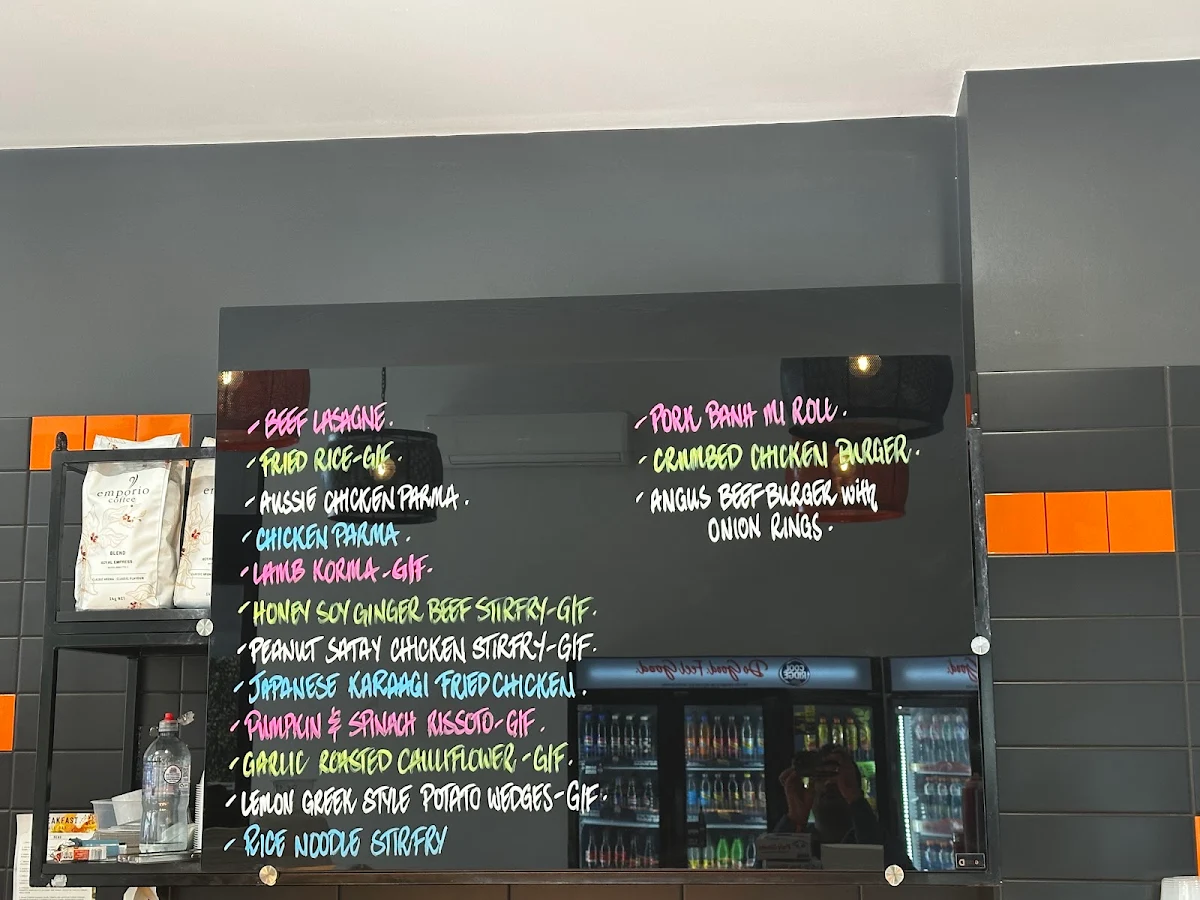 - BEEF LASAGNE.
- FRIED RICE-G/F.
- AUSSIE CHICKEN PARMA.
- CHICKEN PARMA.
- LAMB KORMA-G/F.
- HONEY SOY GINGER BEEF STIRFRY-G/F.
- PEANUT SATAY CHICKEN STIRFRY-G/F.
- JAPANESE KARAAGI FRIED CHICKEN.
- PUMPKIN & SPINACH RISSOTO-G/F.
- GARLIC ROASTED CAULIFLOWER-G/F.
- LEMON GREEK STYLE POTATO WEDGES-G/F.
- RICE NOODLE STIRFRY
- PORK BANH MI ROLL.
- CRUMBED CHICKEN BURGER.
- ANGUS BEEF BURGER with
ONION RINGS.
emporio
coffee
BLEND
ROYAL EMPRESS
Do Good. Feel Good.
COOL RIDGE